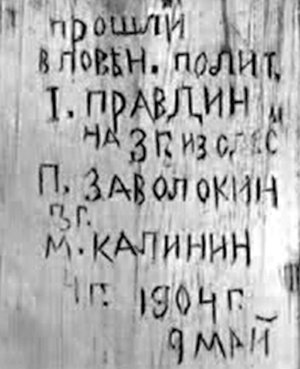 прошли
в повѣн. полит.
I. ПРАВДИН
НА 3 Г. ИЗ
П. ЗАВОЛОКИН
3 Г.
М. КАЛИНИН
4 Г. 1904 Г.
9 МАЙ